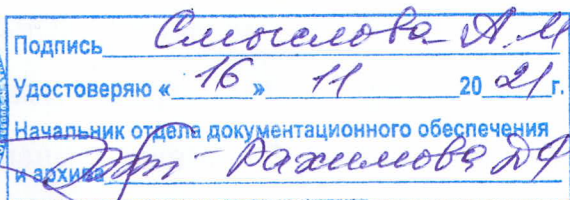 Подпись Смыслова А.М
Удостоверяю « 16 » 11 20 21 г.
Начальник отдела документационного обеспечения
и архива Рахимова ДФ